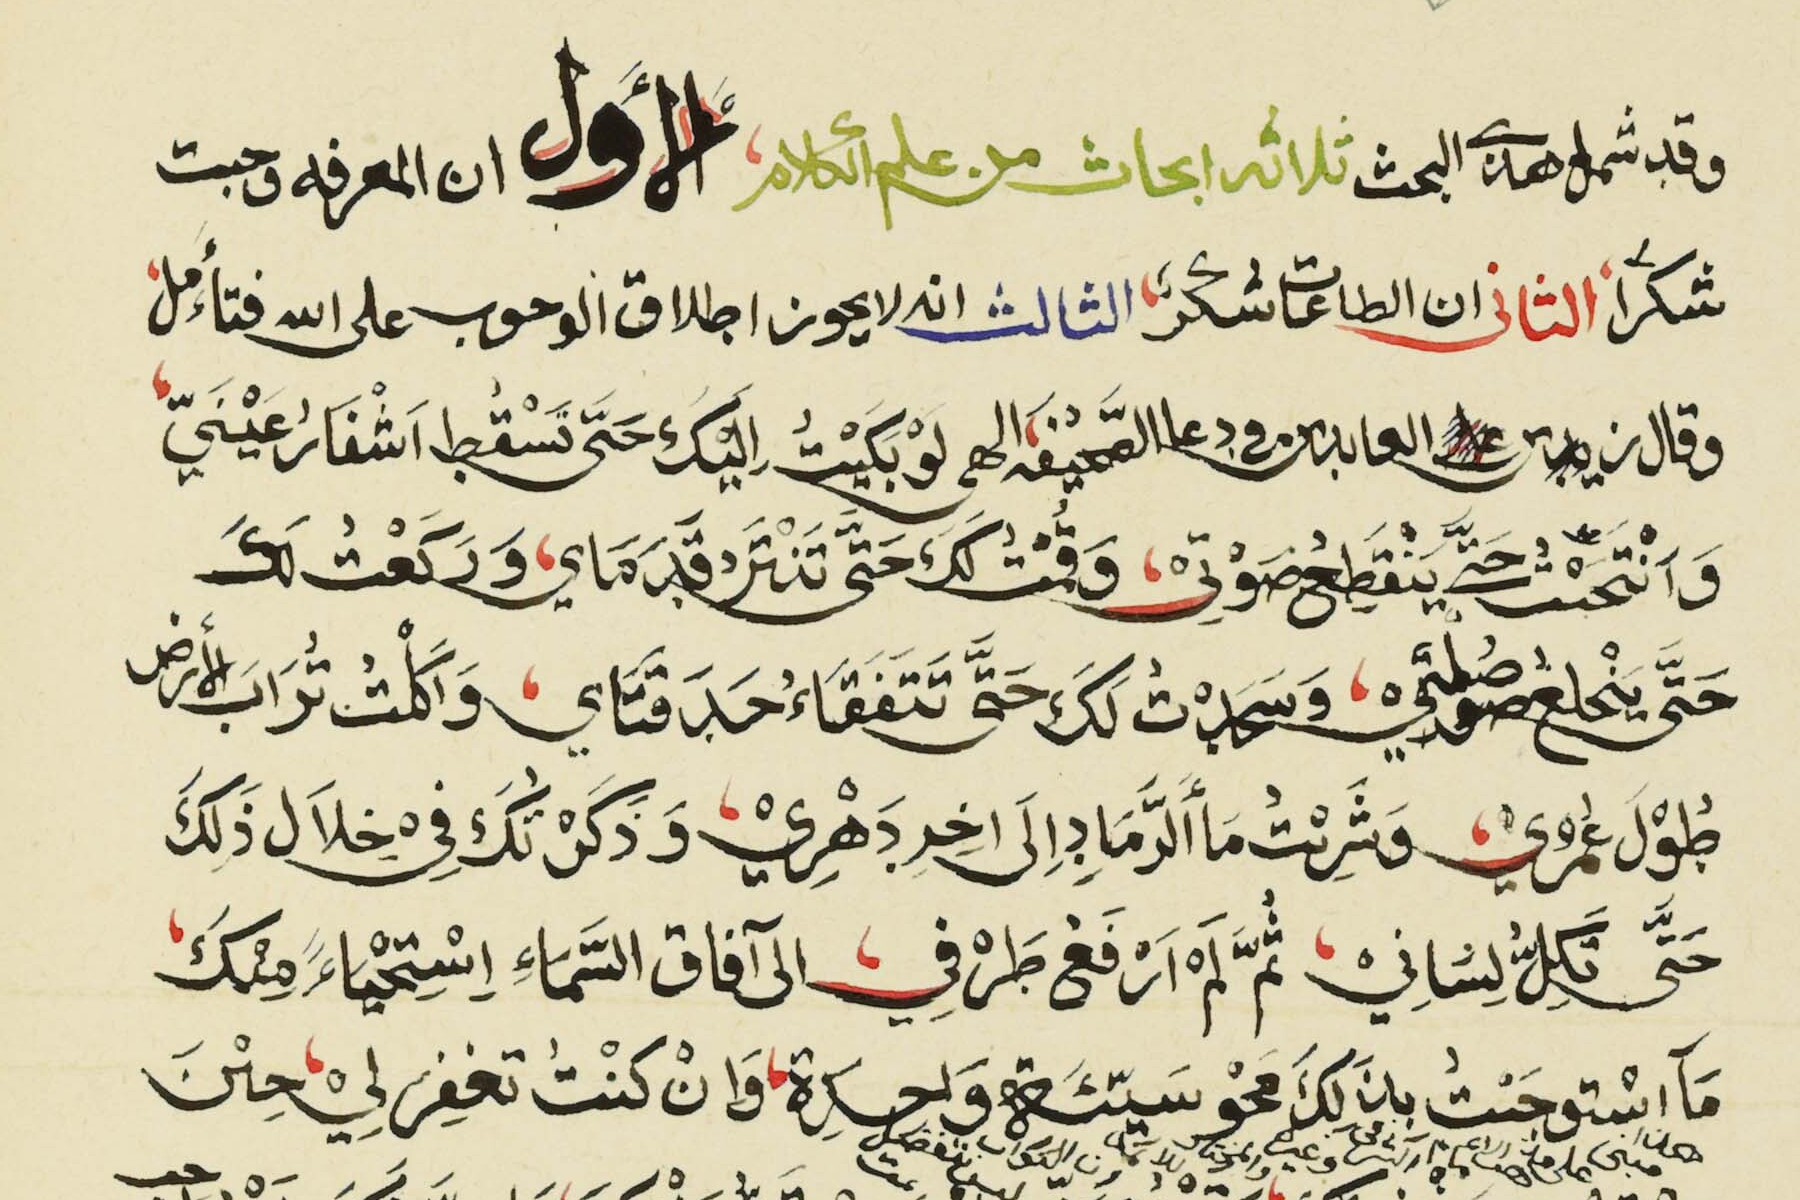 وقد شمل هذا البحث ثلاثه ابحاث من علم الكلام الأول ان المعرفه وجبت
شكراً الثاني ان الطاعات شكرٌ الثالث انه لا يجوز اطلاق الوجوب على الله فتأمل
وقال زين العابدين في دعا الصحيفه الهي لَوْ بَكَيْتُ إِلَيْكَ حَتَّى تَسْقُط اَشْفَارُ عَيْنَيّ
وَاَنْتَحَبْتُ حَتَّى يَنْقَطِعُ صَوْتِيْ وَقُمْتُ لَكَ حَتَّى تَنْتَرُ قَدَمَاي وَرَكَعْتُ لَكَ
حَتَّى يَنْخلعُ صُلْبِي وَسَجَدْتُ لَكَ حَتَّى تَتَفَقَاءُ حَدَقَتَاي وَاَكَلْتُ تُرَابَ الأرض
طُوْلَ عُمْرِيْ وَشَرِبْتُ مَأ ألرَّمَادِ اِلَى اخِرِ دَهْرِيْ وَذَكَرْتُكَ فِيْ خِلَاَل ذَلِكَ
حَتَّى تَكِلُّ لِسَانِيْ ثُمَّ لَمْ اَرْفَعْ طَرْفِي الى آفاق السَّمَاءِ اِسْتِحْيَاءً مِنْكَ
مَآ اسْتوجَبْتُ بِذَلكَ مَحْو سَيّئَةٍ وَاحدَةٍ وَاِنْ كُنْتُ تغفِر لِيْ حِيْنَ